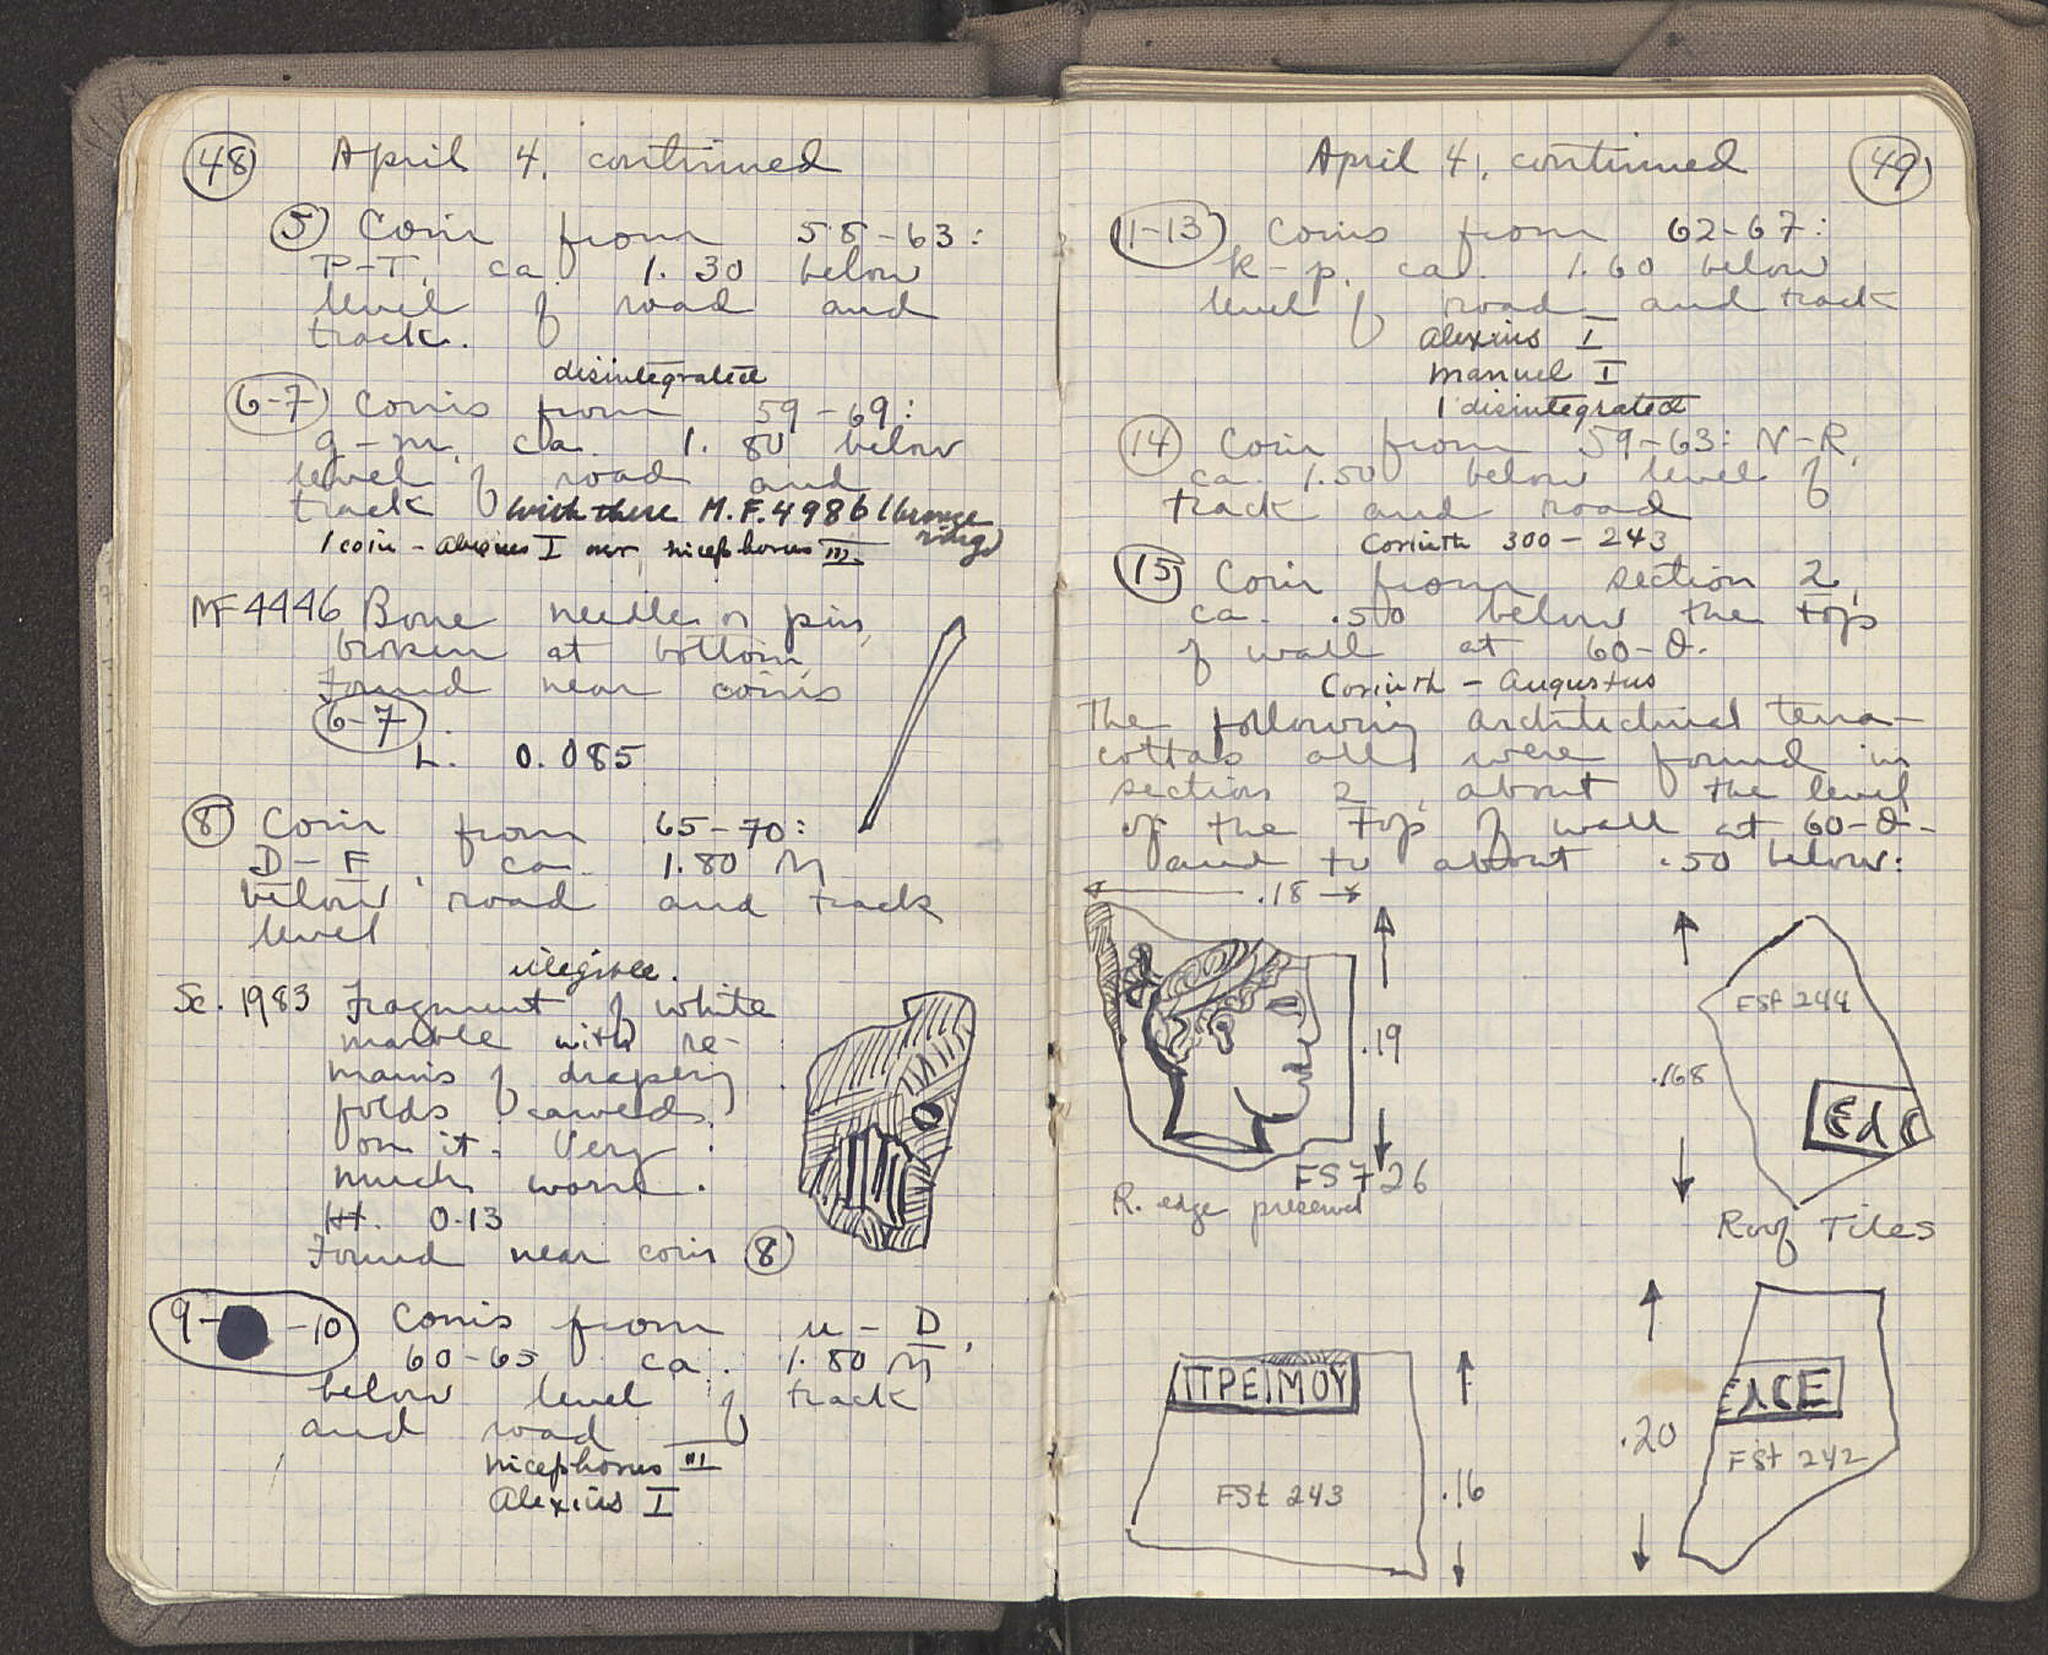 48 April 4, continued
5 Coin from 58-63:
P-T, ca. 1.30 below
level of road and
track.
disintegrated
6-7 Coins from 59-69:
g-m, ca. 1.80 below
level of road and
track with these M.F. 4986 (bronze
ring)
1 coin - Alexius I over Nicephorus III
MF 4446 Bone needle or pin,
broken at bottom,
Found near coins
6-7.
L. 0.085
8 Coin from 65-70:
D-F, ca. 1.80 m
below road and track
level
illegible.
Sc. 1983 Fragment of white
marble with re-
mains of drapery
folds carved
on it. Very
much worn.
Ht. 0.13
Found near coin 8
9- -10 Coins from u-D,
60-65 ca. 1.80 m
below level of track
and road
Nicephorus III
Alexius I
April 4, continued 49
11-13 Coins from 62-67:
k-p, ca. 1.60 below
level of road and track
Alexius I
Manuel I
1 disintegrated
14 Coin from 59-63: N-R,
ca. 1.50 below level of
track and road
Corinth 300-243
15 Coin from section 2,
ca. .50 below the top
of wall at 60-θ.
Corinth - Augustus
The following architectural terra-
cottas all were found in
section 2, about the level
of the top of wall at 60-θ-
and to about .50 below:
.18
.19
FS 726
R. edge preserved
FSt 244
.168
Ed C
Roof Tiles
ΠΡΕΙΜΟΥ
FSt 243
.16
ΕΛCΕ
FSt 242
.20